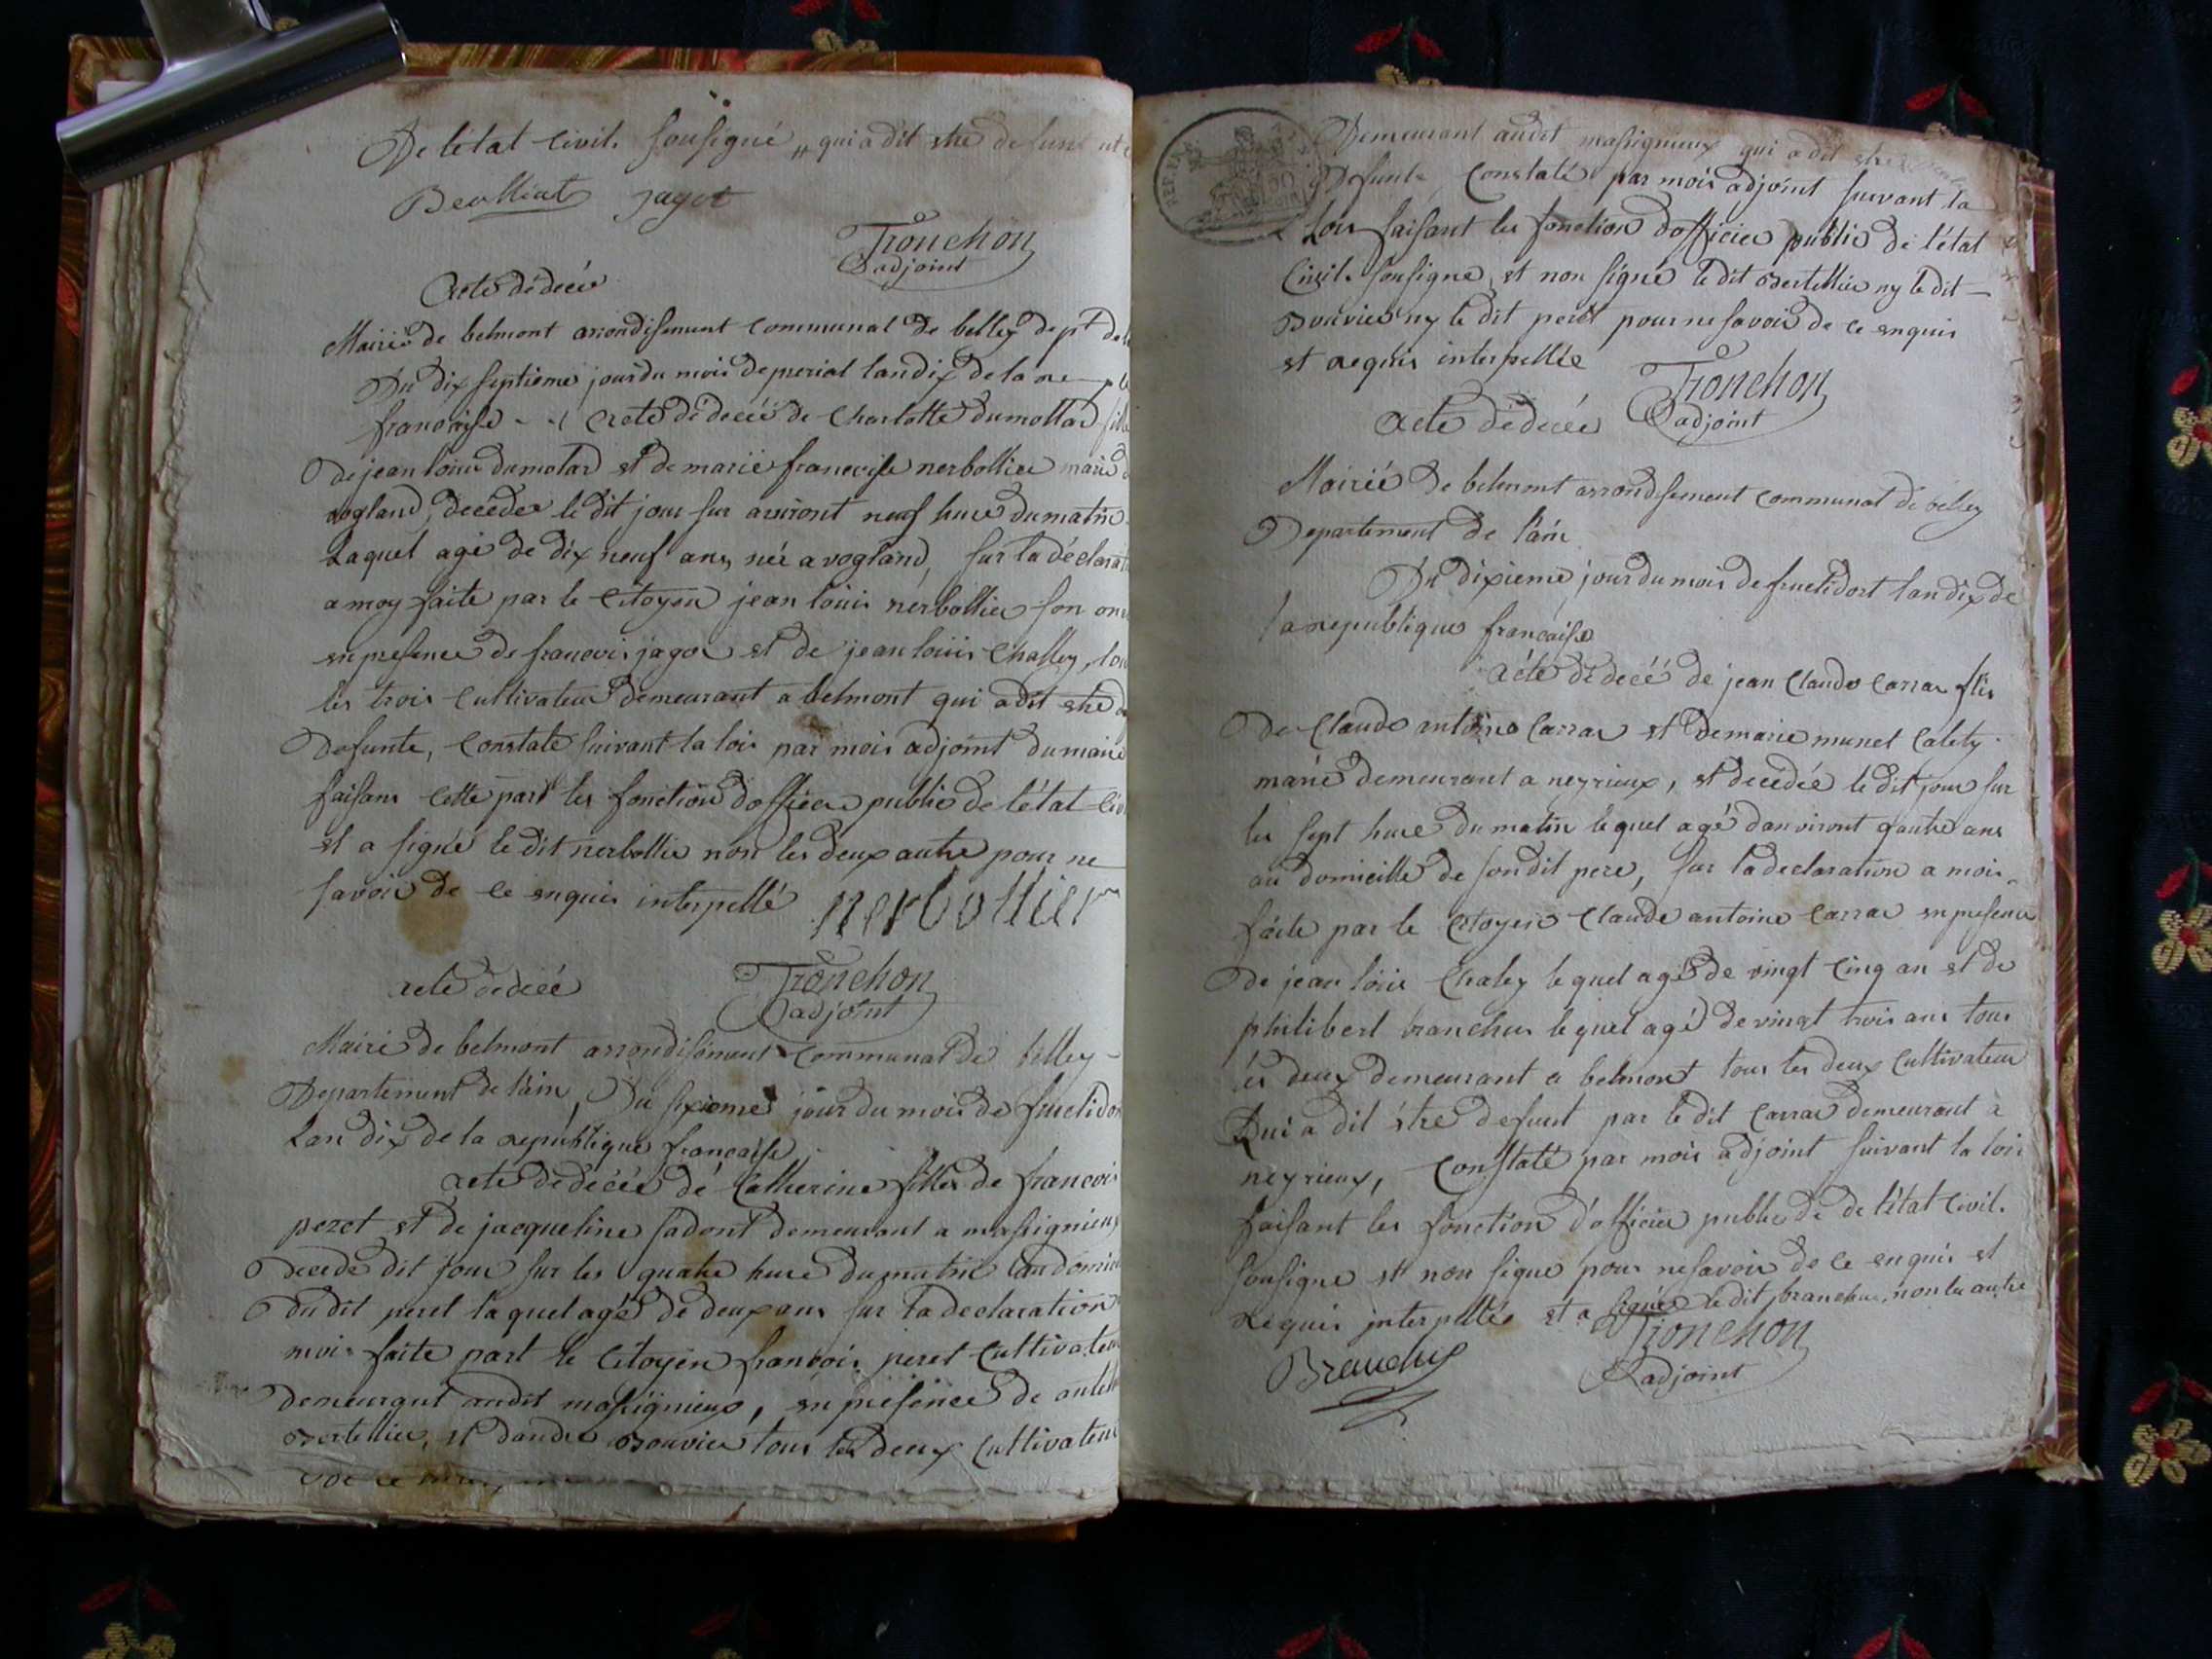 De létat Civil. Sousigné, qui a dit etre defunt
Jagot
Tronchon
adjoint
Acte dédecée
Mairie de belmont arrondisement communal de belley dept de
Du dix septieme jour du mois de prerial lan dix de la re
francaise Acte dédecée de Charlotte dumollard
De jean louis dumolard et de marie francoise nerbollier marié
vogland, decedée le dit jour sur aviront neuf hure du matin
Laquel agé de dix neuf ans, née a vogland, sur la déclarat
a moy faite par le Citoyen jean louis nerbollier son
en presence de francois jagot et de jean louis Challey,
les trois Cultivateur demeurant a belmont qui a dit etre
Defunte, Constaté suivant la lois par mois adjoint du maire
faisans cette part les fonction dofficier public de létat
et a signé le dit nerbollier non les deux autre pour ne
savoir de ce enquis interpellé nerbollier
acte dedecée
Tronchon
adjoint
Mairie de belmont arrondisement Communal de belley
Departement de lain, Du sixieme jour du mois de fructidor
Lan dix de la republique francaise
acte dedecée de Catherine filles de francois
peret et de jacqueline sadont demeurant a massignieux
Decede dit jour sur les quatre hure du matin au
du dit peret laquel agée de deux ans sur la declaration
mois faite part le Citoyen francois peret Cultivateur
Demeurant audit massignieux, en présence de
Bertellier, et dandré Bouvier tous les deux Cultivateur
Demeurant audit massignieux qui a dit etre
Defunte, Constaté par mois adjoint suivant la
Lois faisant les fonction dofficier public de létat
Civil. sousigne, et non signé le dit Bertellier ny le dit
Bouvier ny le dit peret pour ne savoir de ce enquis
et requis interpellée
Tronchon
adjoint
acte dédecée
Mairié de belmont arrondisement communal de belley
Departement de lain
Du dixieme jour du mois de fructidort lan dix de
la republique francaise
acte dedecéé de jean Claude Carrar fils
De Claude antoine Carrar et de marie munet Calety
marié demeurant a neyrieux, et decedée le dit jour sur
les sept hure du matin lequel agé danviront quatre ans
au domicille de son dit pere, sur la declaration a mois
faite par le Citoyen Claude antoine Carrar en presence
De jean louis Chaley lequel agé de vingt Cinq an et de
philibert branchus lequel agé de vingt trois ans tous
les deux demeurant a belmont tous les deux Cultivateur
Qui a dit étre defunt par le dit Carrar demeurant a
neyrieux, Constaté par mois adjoint suivant la lois
faisant les fonction d'officier public de de létat Civil.
sousigne et non signe pour ne savoir de ce enquis et
requis interpellée et a signée le dit branchus non les autre
Tronchon
adjoint
Branchus